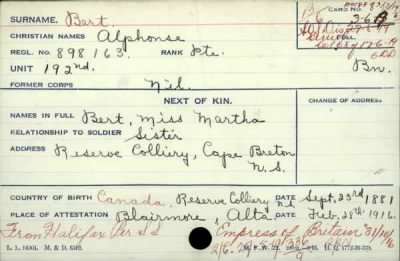 SURNAME. Bert.
CARD NO.
CHRISTIAN NAMES Alphonse
REGL. No. 898163. RANK Pte.
UNIT 192nd. Bn.
FORMER CORPS Nil.
NEXT OF KIN.
CHANGE OF ADDRESS
NAMES IN FULL Bert, Miss Martha
RELATIONSHIP TO SOLDIER Sister
ADDRESS Reserve Colliery, Cape Breton
N.S.
COUNTRY OF BIRTH Canada, Reserve Colliery N.S. DATE Sept. 23rd 1881
PLACE OF ATTESTATION Blairmore, Alta. DATE Feb. 28th 1916.
From Halifax Per S.S. Empress of Britain 31/10/16